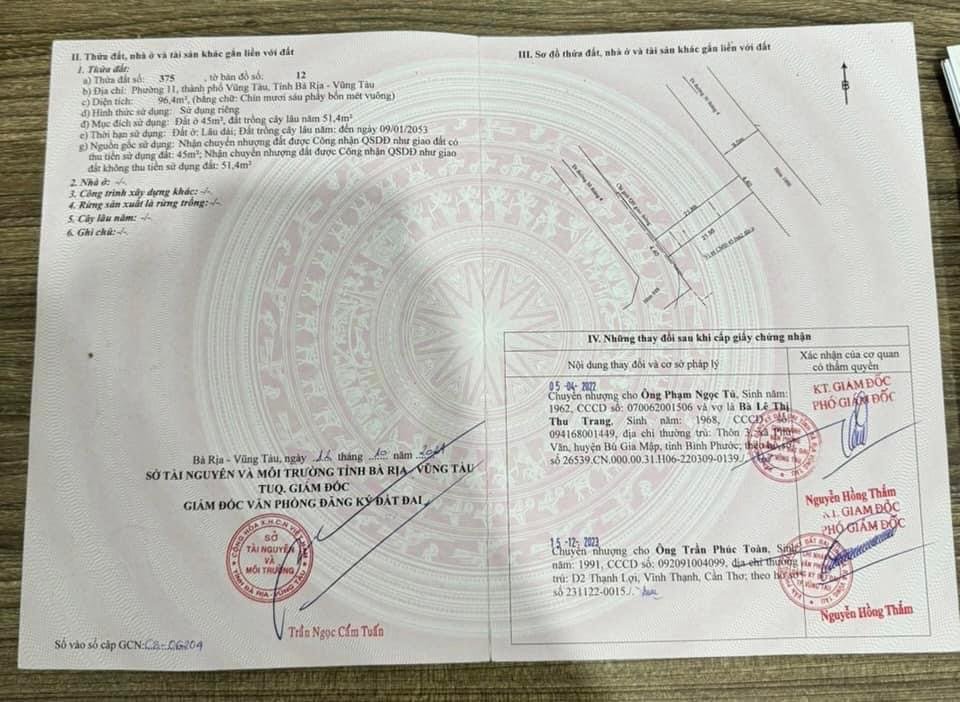 II. Thửa đất, nhà ở và tài sản khác gắn liền với đất
1. Thửa đất:
a) Thửa đất số: 375 , tờ bản đồ số: 12
b) Địa chỉ: Phường 11, thành phố Vũng Tàu, Tỉnh Bà Rịa - Vũng Tàu
c) Diện tích: 96,4m², (bằng chữ: Chín mươi sáu phẩy bốn mét vuông)
d) Hình thức sử dụng: Sử dụng riêng
đ) Mục đích sử dụng: Đất ở 45m², đất trồng cây lâu năm 51,4m²
e) Thời hạn sử dụng: Đất ở: Lâu dài; Đất trồng cây lâu năm: đến ngày 09/01/2053
g) Nguồn gốc sử dụng: Nhận chuyển nhượng đất được Công nhận QSDĐ như giao đất có
thu tiền sử dụng đất: 45m²; Nhận chuyển nhượng đất được Công nhận QSDĐ như giao
đất không thu tiền sử dụng đất: 51,4m²
2. Nhà ở: -/-.
3. Công trình xây dựng khác: -/-.
4. Rừng sản xuất là rừng trồng: -/-.
5. Cây lâu năm: -/-
6. Ghi chú: -/-.
Bà Rịa - Vũng Tàu, ngày 12 tháng 10 năm
SỞ TÀI NGUYÊN VÀ MÔI TRƯỜNG TỈNH BÀ RỊA - VŨNG TÀU
TUQ. GIÁM ĐỐC
GIÁM ĐỐC VĂN PHÒNG ĐĂNG KÝ ĐẤT ĐAI
CỘNG HÒA X.H.C.N VIỆT NAM
SỞ
TÀI NGUYÊN
VÀ
MÔI TRƯỜNG
TỈNH BÀ RỊA - VŨNG TÀU
Trần Ngọc Cẩm Tuấn
Số vào sổ cấp GCN: CS-06204
III. Sơ đồ thửa đất, nhà ở và tài sản khác gắn liền với đất
B
Ra đường 30 tháng 4
Ra đường 30 tháng 4
4.40
21.89
21.95
4.40
IV. Những thay đổi sau khi cấp giấy chứng nhận
Nội dung thay đổi và cơ sở pháp lý
Xác nhận của cơ quan
có thẩm quyền
05 -04- 2022
Chuyển nhượng cho Ông Phạm Ngọc Tú, Sinh năm:
1962, CCCD số: 070062001506 và vợ là Bà Lê Thị
Thu Trang, Sinh năm: 1968, CCCD số:
094168001449, địa chỉ thường trú: Thôn 3, xã
Văn, huyện Bù Gia Mập, tỉnh Bình Phước; theo hồ sơ
số 26539.CN.000.00.31.H06-220309-0139./.
KT. GIÁM ĐỐC
PHÓ GIÁM ĐỐC
Nguyễn Hồng Thắm
15 -12- 2023
Chuyển nhượng cho Ông Trần Phúc Toàn, Sinh
năm: 1991, CCCD số: 092091004099, địa chỉ thường
trú: D2 Thạnh Lợi, Vĩnh Thạnh, Cần Thơ; theo hồ sơ
số 231122-0015./.
KT. GIÁM ĐỐC
PHÓ GIÁM ĐỐC
Nguyễn Hồng Thắm